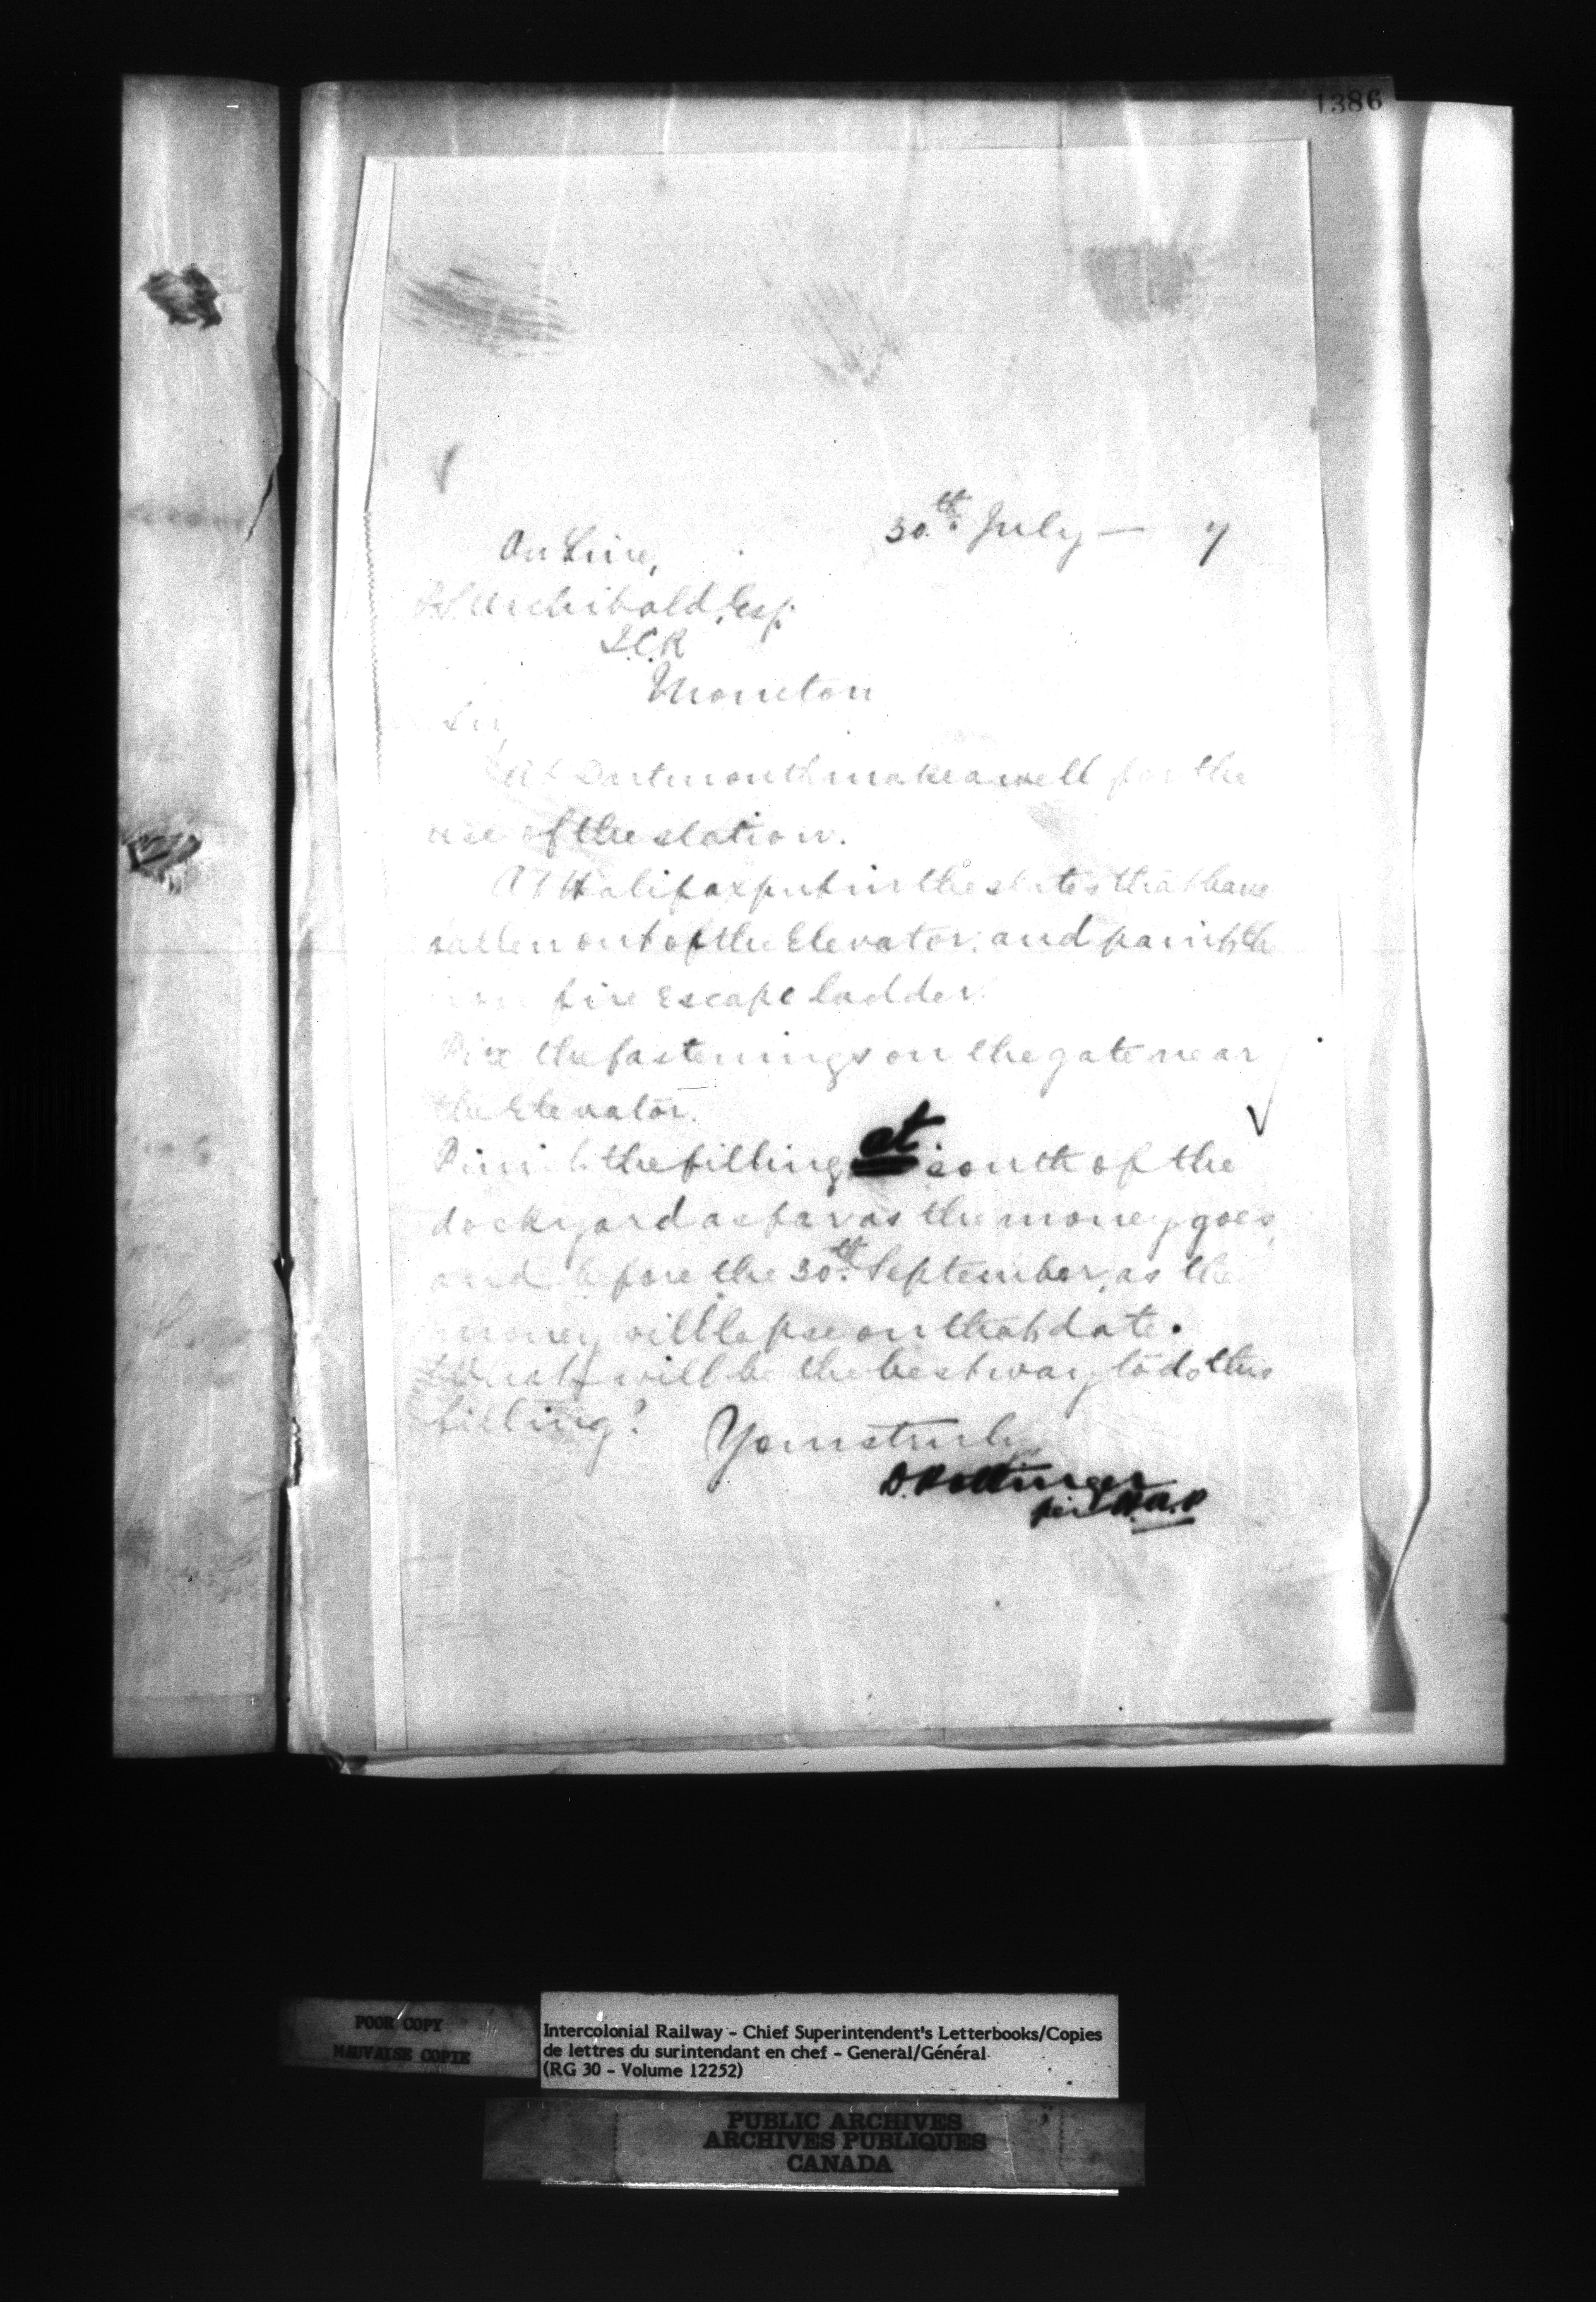 1386
30th. July — 7
On Line,
P.S. Archibald, Esq.
I.C.R
Moncton
Sir,
At Dartmouth make a well for the
use of the station.
At Halifax put in the slates that have
fallen out of the Elevator, and paint the
iron fire escape ladder.
Fix the fastenings on the gate near
the Elevator.
Finish the filling at south of the
dockyard as far as the money goes,
and before the 30th. September, as the
money will lapse on that date.
What will be the best way to do this
filling?
Yours truly
D. Pottinger
per W.A.P
POOR COPY
MAUVAISE COPIE
Intercolonial Railway - Chief Superintendent's Letterbooks/Copies
de lettres du surintendant en chef - General/Général
(RG 30 - Volume 12252)
PUBLIC ARCHIVES
ARCHIVES PUBLIQUES
CANADA